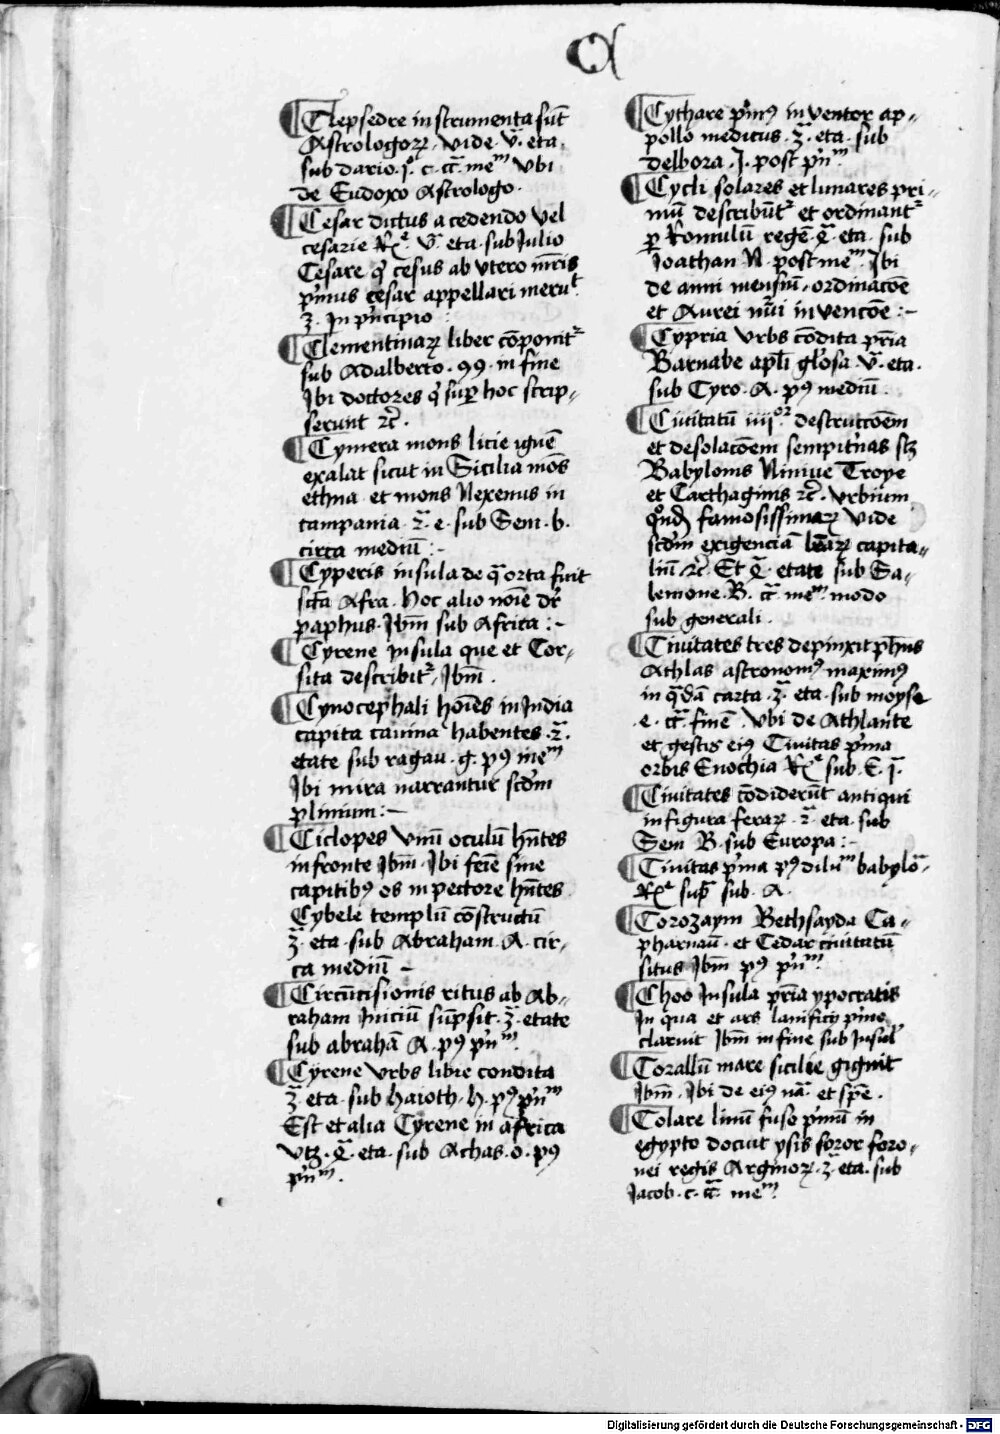 C
Clepsedre instrumenta sūt
Astrologorꝝ. vide. v̄. eta.
sub dario. c. me᷒m vbi
de Eudoxo Astrologo.
Cesar dictus a cedendo vel
cesarie R. v̄. eta. sub Julio
Cesare qꝫ cesus ab vtero mr̄is
p̍mus cesar appellari meruͭ.
ʒ. In p̍ncipio
Clementinaꝝ liber cōponitᷣ
sub Adalberto. 99. in fine
Ibi doctores qꝫ suꝑ hoc scrip-
serunt ⁊c̄.
Cymera mons licie ignē
exalat sicut in Sicilia mōs
ethna et mons Nexenus in
campania. 2ᷓ. e. sub Sem. b.
circa mediū :-
Cyperis insula de qᷓ orta fuit
sc̄a Afra. Hoc alio noīe dr̄
paphus. Ibm̄ sub Africa :-
Cyrene Insula que et Cor-
sita describitᷣ. Ibm̄.
Cynocephali hoīes in India
capita canina habentes. 2ᷓ.
etate sub ragau. g. pꝰ meᵐ
Ibi mira narrantur scd̄m
plinium :-
Ciclopes vnū oculū hn̄tes
in fronte Ibm̄. Ibi feīe sine
capitibꝰ os in pectore hn̄tes
Cybele templū cōstructū
ʒᷓ. eta. sub Abraham. A. cir-
ca mediū -
Circūcisionis ritus ab Ab-
raham Iniciū sūpsit. ʒᷓ. etate
sub abrahā A. pꝰ p̍nᵐ.
Cyrene vrbs libie condita
ʒᷓ. eta. sub haioth. h. pꝰ p̍nᵐ
Est et alia Cyrene in africa
vtꝫ. 4ᷓ. eta. sub Achas. o. pꝰ
p̍nᵐ.
Cythare p̍mꝰ inventor ap-
pollo medicus. ʒᷓ. eta. sub
delbora. I. post p̍nᵐ
Cycli solares et lunares pri-
mū describūtᷣ et ordinantᷣ
ꝑ Romulū regē 4ᷓ. eta. sub
Joathan N. post meᵐ. Ibi
de anni mensiū. ordinacōe
et Aurei nūi invencōe :-
Cypria vrbs cōdita pria
Barnabe apl̄i glosa. v̄. eta.
sub Cyro. A. pꝰ mediū.
Ciuitatū iiijᵒʳ destruccōem
et desolacōem sempit̍nas sꝫ
Babylonis Niniue Troye
et Carthaginis ⁊c̄. vrbium
qͦndā famosissimaꝝ vide
scd̄m exigenciā capita-
liū ⁊c̄. Et 4ᷓ. etate sub Sa-
lemone. B. c̄. meᵐ. modo
sub generali.
Ciuitates tres depinxit ph̄us
Athlas astronomꝰ maximꝰ
in qᷓdā carta. ʒᷓ. eta. sub moyse
.e. c̄. finē. vbi de Athlante
et gestis eiꝰ Ciuitas p̍ma
orbis Enochia Rͤ sub. E. ī.
Ciuitates cōdiderūt antiqui
in figura feraꝝ. 2ᷓ. eta. sub
Sem B. sub Europa :-
Ciuitas p̍ma pꝰ diluᵐ babylō.
Rͤ supᷓ sub. A.
Corozaym Bethsayda Ca-
pharnaū. et Cedar ciuitatū
situs Ibm̄ pꝰ p̍nᵐ.
Choo Insula pria ypocratis
In qua et ars lanificij p̍me
claruit Ibm̄ in fine sub Insul̍
Corallū mare sicilie gignit
Ibm̄. Ibi de eiꝰ nā. et spē.
Colare linū fuso p̍mū in
egypto docuit ysis soror foro-
nei regis Arginoꝝ. ʒᷓ. eta. sub
Jacob. c. c̄. meᵐ.
Digitalisierung gefördert durch die Deutsche Forschungsgemeinschaft - DFG